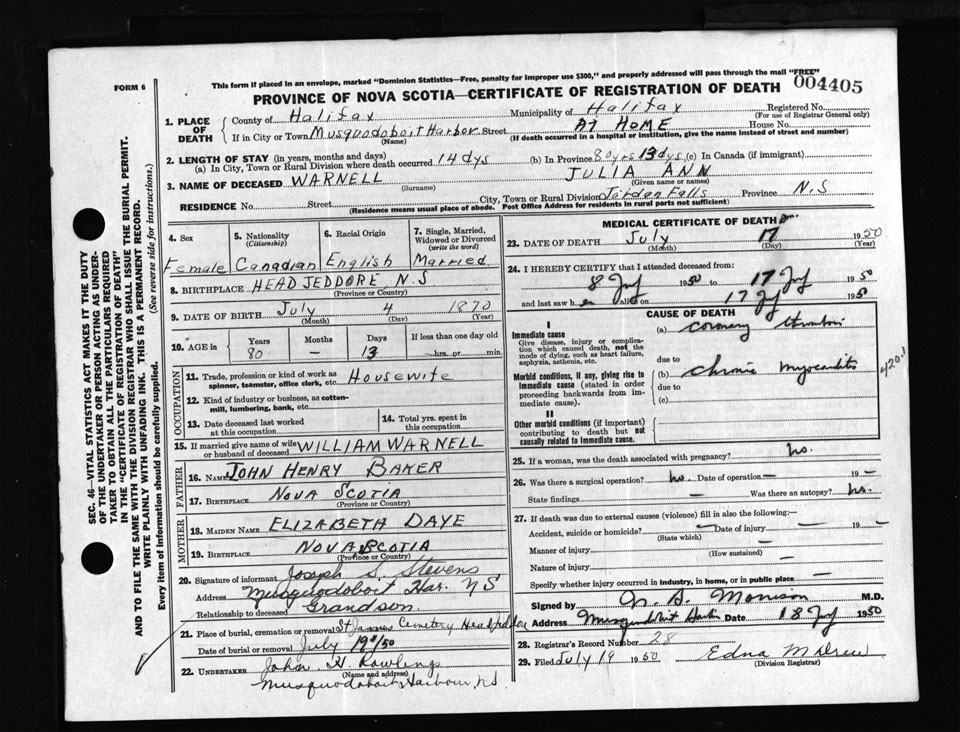 This form if placed in an envelope, marked "Dominion Statistics—Free, penalty for improper use $300," and properly addressed will pass through the mail "FREE"
FORM 6
004405
PROVINCE OF NOVA SCOTIA—CERTIFICATE OF REGISTRATION OF DEATH
1. PLACE OF DEATH
County of Halifax Municipality of Halifax Registered No.
(For use of Registrar General only)
If in City or Town Musquodoboit Harbor Street AT HOME House No.
(Name) (If death occurred in a hospital or institution, give the name instead of street and number)
2. LENGTH OF STAY (in years, months and days)
(a) In City, Town or Rural Division where death occurred 14 dys (b) In Province 80 yrs 13 dys (c) In Canada (if immigrant)
3. NAME OF DECEASED WARNELL JULIA ANN
(Surname) (Given name or names)
RESIDENCE No. Street City, Town or Rural Division Jordan Falls Province N.S
(Residence means usual place of abode. Post Office Address for residents in rural parts not sufficient)
4. Sex
Female
5. Nationality
(Citizenship)
Canadian
6. Racial Origin
English
7. Single, Married, Widowed or Divorced
(write the word)
Married
8. BIRTHPLACE HEAD JEDDORE, N.S
(Province or Country)
9. DATE OF BIRTH July 4 1870
(Month) (Day) (Year)
10. AGE in Years Months Days If less than one day old
80 — 13 hrs. or min.
OCCUPATION
11. Trade, profession or kind of work as Housewife
spinner, teamster, office clerk, etc.
12. Kind of industry or business, as cotton-
mill, lumbering, bank, etc.
13. Date deceased last worked
at this occupation
14. Total yrs. spent in
this occupation
15. If married give name of wife
or husband of deceased WILLIAM WARNELL
FATHER
16. Name JOHN HENRY BAKER
17. Birthplace NOVA SCOTIA
(Province or Country)
MOTHER
18. MAIDEN NAME ELIZABETH DAYE
19. Birthplace NOVA SCOTIA
(Province or Country)
20. Signature of informant Joseph S. Stevens
Address Musquodoboit Har. N S
Relationship to deceased Grandson
21. Place of burial, cremation or removal St James Cemetery Head Jeddore
Date of burial or removal July 19/50
22. UNDERTAKER John H. Rowlings
(Name and address)
Musquodoboit Harbour, N.S.
MEDICAL CERTIFICATE OF DEATH
23. DATE OF DEATH July 17 1950
(Month) (Day) (Year)
24. I HEREBY CERTIFY that I attended deceased from:
8 July 1950 to 17 July 1950
and last saw her alive on 17 July 1950
CAUSE OF DEATH
I
Immediate cause
Give disease, injury or complica-
tion which caused death, not the
mode of dying, such as heart failure,
asphyxia, asthenia, etc.
(a) coronary thrombosis
due to
Morbid conditions, if any, giving rise to
immediate cause (stated in order
proceeding backwards from im-
mediate cause).
(b) chronic myocarditis
due to
(c)
420.1
II
Other morbid conditions (if important)
contributing to death but not
causally related to immediate cause.
25. If a woman, was the death associated with pregnancy? no.
26. Was there a surgical operation? no. Date of operation — 19 —
State findings — Was there an autopsy? no.
27. If death was due to external causes (violence) fill in also the following:—
Accident, suicide or homicide? — Date of injury — 19 —
(State which)
Manner of injury —
(How sustained)
Nature of injury —
Specify whether injury occurred in industry, in home, or in public place —
Signed by Morrison M.D.
Address Musquodoboit Harb Date 18 July 1950
28. Registrar's Record Number 28
29. Filed July 19 1950 Edna M Drew
(Division Registrar)
SEC. 46—VITAL STATISTICS ACT MAKES IT THE DUTY
OF THE UNDERTAKER OR PERSON ACTING AS UNDER-
TAKER TO OBTAIN ALL THE PARTICULARS REQUIRED
IN THE "CERTIFICATE OF REGISTRATION OF DEATH"
AND TO FILE THE SAME WITH THE DIVISION REGISTRAR WHO SHALL ISSUE THE BURIAL PERMIT.
WRITE PLAINLY WITH UNFADING INK. THIS IS A PERMANENT RECORD.
Every item of information should be carefully supplied. (See reverse side for instructions.)